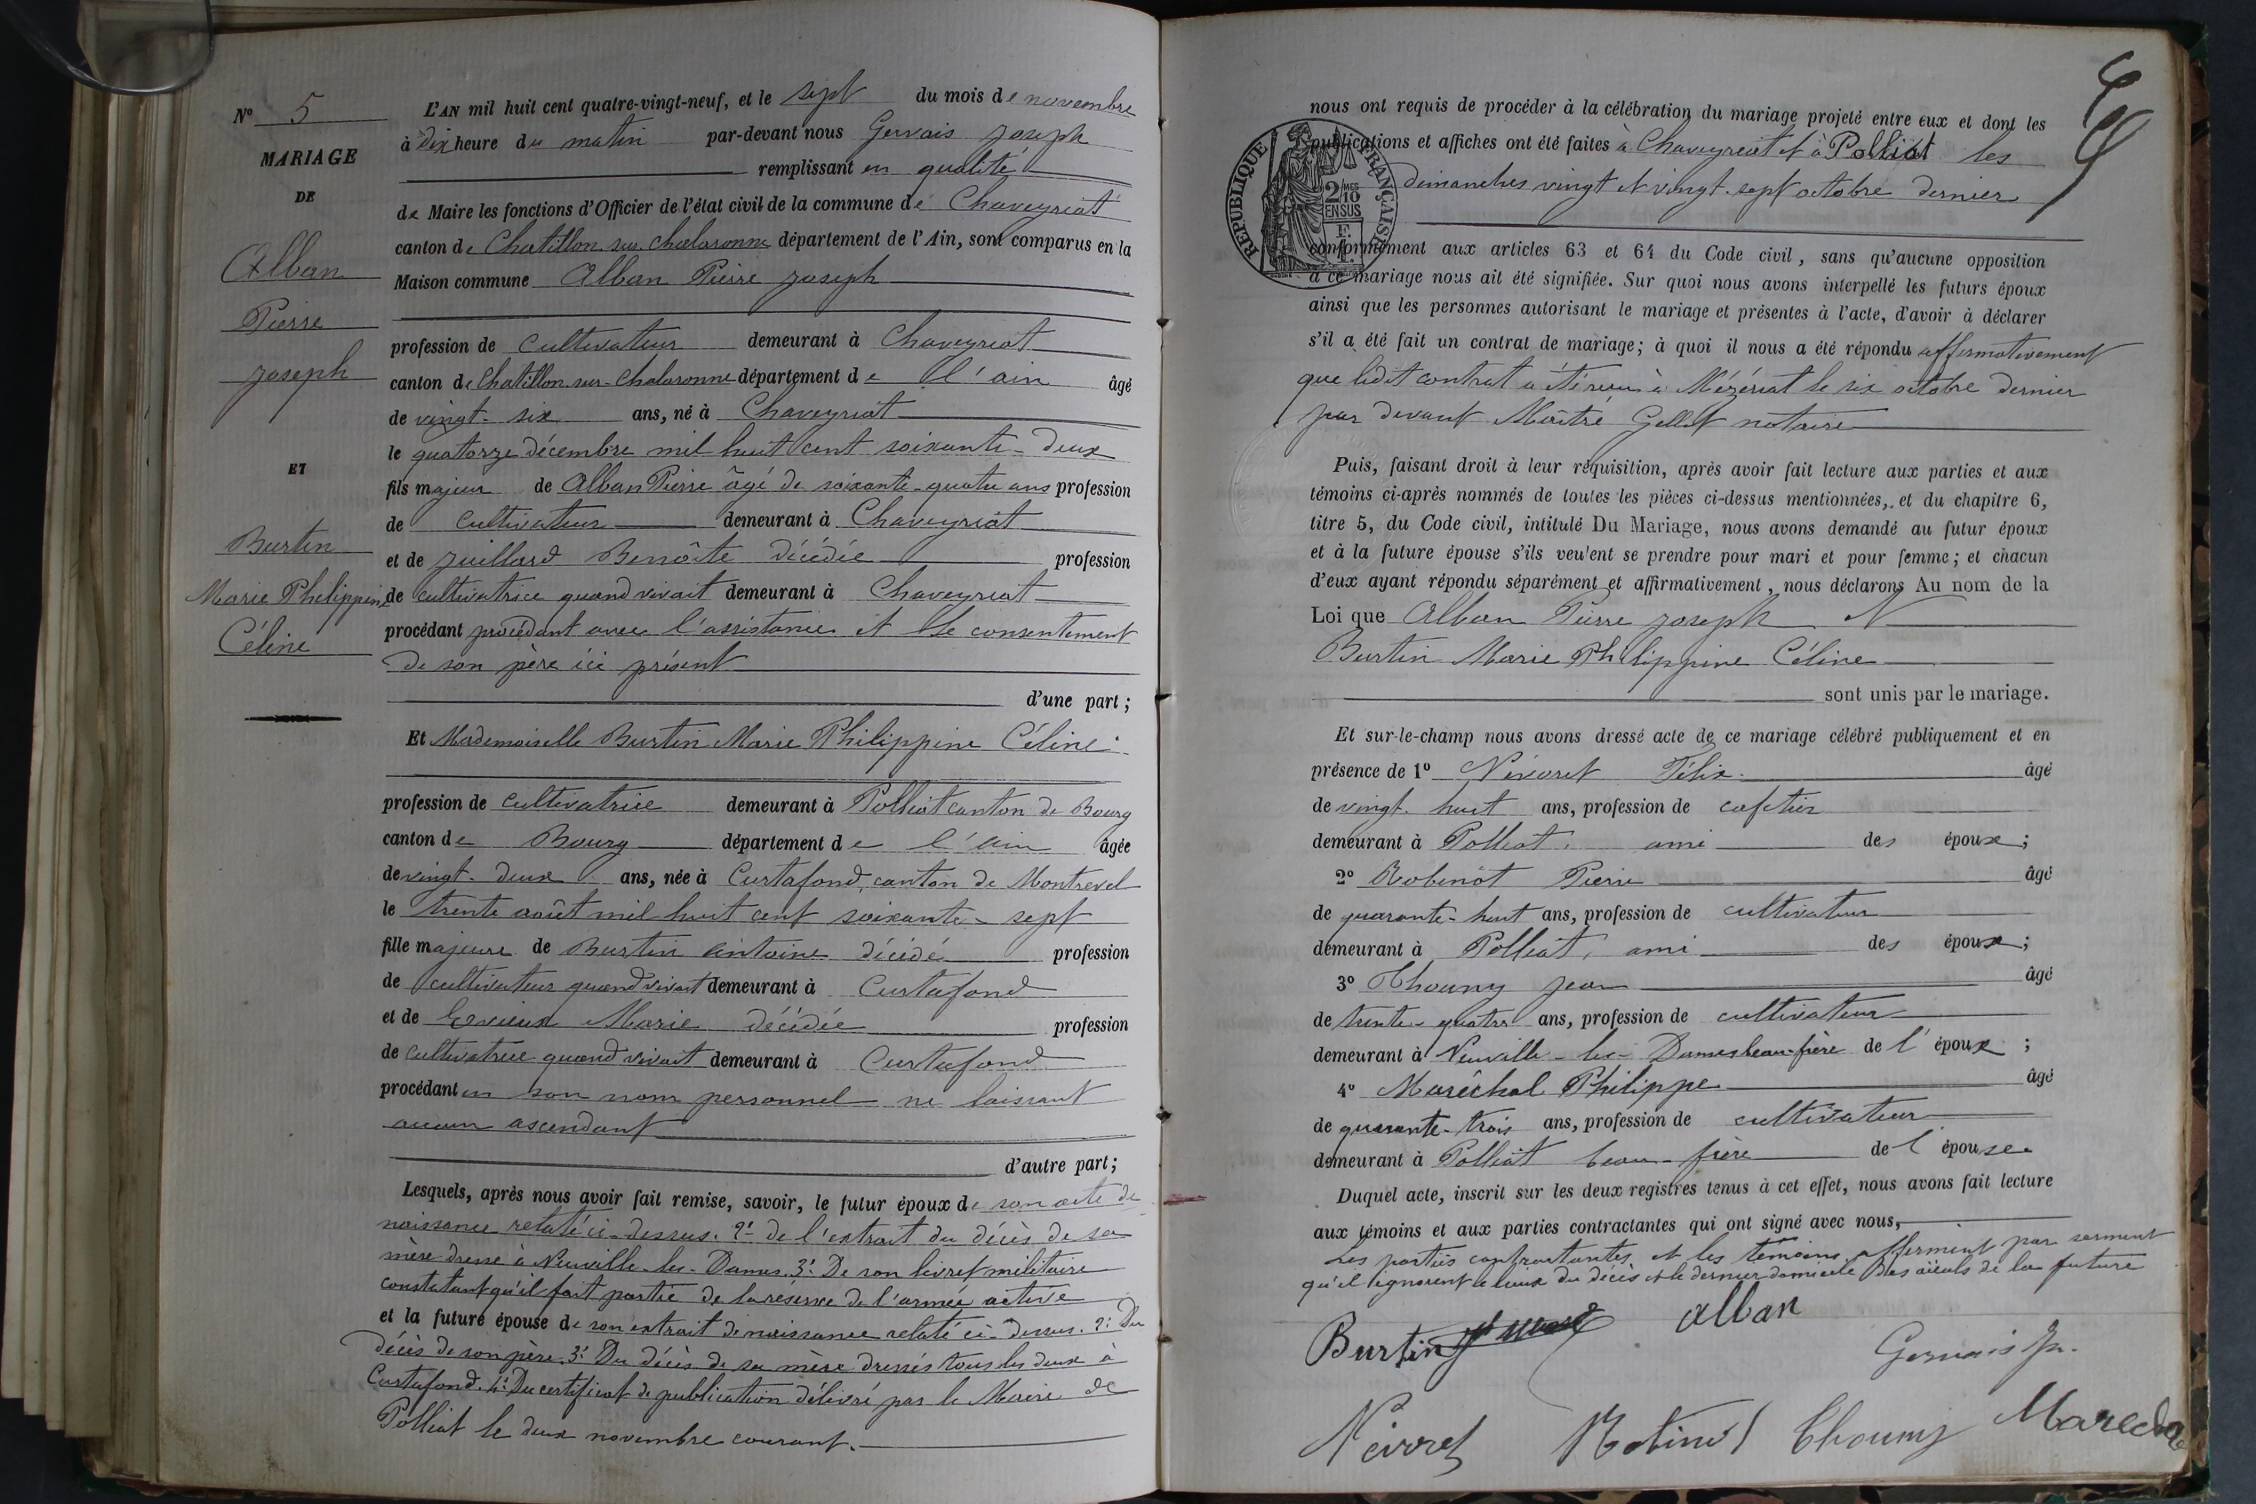 N° 5
MARIAGE
DE
Alban
Pierre
Joseph
ET
Burtin
Marie Philippine
Céline
L'AN mil huit cent quatre-vingt-neuf, et le sept du mois de novembre
à dix heure du matin par-devant nous Gervais Joseph
remplissant en qualité
de Maire les fonctions d'Officier de l'état civil de la commune de Chaveyriat
canton de Chatillon sur chalaronne département de l'Ain, sont comparus en la
Maison commune Alban Pierre Joseph
profession de cultivateur demeurant à Chaveyriat
canton de Chatillon-sur-Chalaronne département de l'ain âgé
de vingt-six ans, né à Chaveyriat
le quatorze décembre mil huit cent soixante-deux
fils majeur de Alban Pierre âgé de soixante-quatre ans profession
de cultivateur demeurant à Chaveyriat
et de Juillard Benoîte décédée profession
de cultivatrice quand vivait demeurant à Chaveyriat
procédant procédant avec l'assistance et le consentement
de son père ici présent
d'une part ;
Et Mademoiselle Burtin Marie Philippine Céline
profession de cultivatrice demeurant à Polliat canton de Bourg
canton de Bourg département de l'ain âgée
de vingt-deux ans, née à Curtafond, canton de Montrevel
le trente août mil huit cent soixante-sept
fille majeure de Burtin Antoine décédé profession
de cultivateur quand vivait demeurant à Curtafond
et de Evieux Marie décédée profession
de cultivatrice quand vivait demeurant à Curtafond
procédant en son nom personnel ne laissant
aucun ascendant
d'autre part ;
Lesquels, après nous avoir fait remise, savoir, le futur époux de son acte de
naissance relaté ci-dessus. 2° de l'extrait du décès de sa
mère dressé à Neuville-les-Dames. 3° De son livret militaire
constatant qu'il fait partie de la réserve de l'armée active
et la future épouse de son extrait de naissance relaté ci-dessus. 2° Du
décès de son père. 3° Du décès de sa mère dressés tous les deux à
Curtafond. 4° Du certificat de publication délivré par le Maire de
Polliat le deux novembre courant.
nous ont requis de procéder à la célébration du mariage projeté entre eux et dont les
publications et affiches ont été faites à Chaveyriat et à Polliat les
dimanches vingt et vingt-sept octobre dernier
RÉPUBLIQUE FRANÇAISE
2 MES 10
EN SUS
conformément aux articles 63 et 64 du Code civil, sans qu'aucune opposition
à ce mariage nous ait été signifiée. Sur quoi nous avons interpellé les futurs époux
ainsi que les personnes autorisant le mariage et présentes à l'acte, d'avoir à déclarer
s'il a été fait un contrat de mariage ; à quoi il nous a été répondu affermativement
que ledit contrat a été reçu à Mézériat le six octobre dernier
par devant Maître notaire
Puis, faisant droit à leur réquisition, après avoir fait lecture aux parties et aux
témoins ci-après nommés de toutes les pièces ci-dessus mentionnées, et du chapitre 6,
titre 5, du Code civil, intitulé Du Mariage, nous avons demandé au futur époux
et à la future épouse s'ils veulent se prendre pour mari et pour femme ; et chacun
d'eux ayant répondu séparément et affirmativement, nous déclarons Au nom de la
Loi que Alban Pierre Joseph et
Burtin Marie Philippine Céline
sont unis par le mariage.
Et sur-le-champ nous avons dressé acte de ce mariage célébré publiquement et en
présence de 1° Névoret Félix âgé
de vingt-huit ans, profession de cafetier
demeurant à Polliat, ami des époux ;
2° Robinot Pierre âgé
de quarante-huit ans, profession de cultivateur
demeurant à Polliat, ami des époux ;
3° Chouny Jean âgé
de trente-quatre ans, profession de cultivateur
demeurant à Neuville-les-Dames beau-frère de l'époux ;
4° Maréchal Philippe âgé
de quarante-trois ans, profession de cultivateur
demeurant à Polliat beau-frère de l'épouse
Duquel acte, inscrit sur les deux registres tenus à cet effet, nous avons fait lecture
aux témoins et aux parties contractantes qui ont signé avec nous,
Les parties contractantes et les témoins afferment par serment
qu'il ignorent le lieux du décès et le dernier domicile des aïeuls de la future
Burtin alban
Gervais Jh.
Névoret Robinot Chouny Marechal